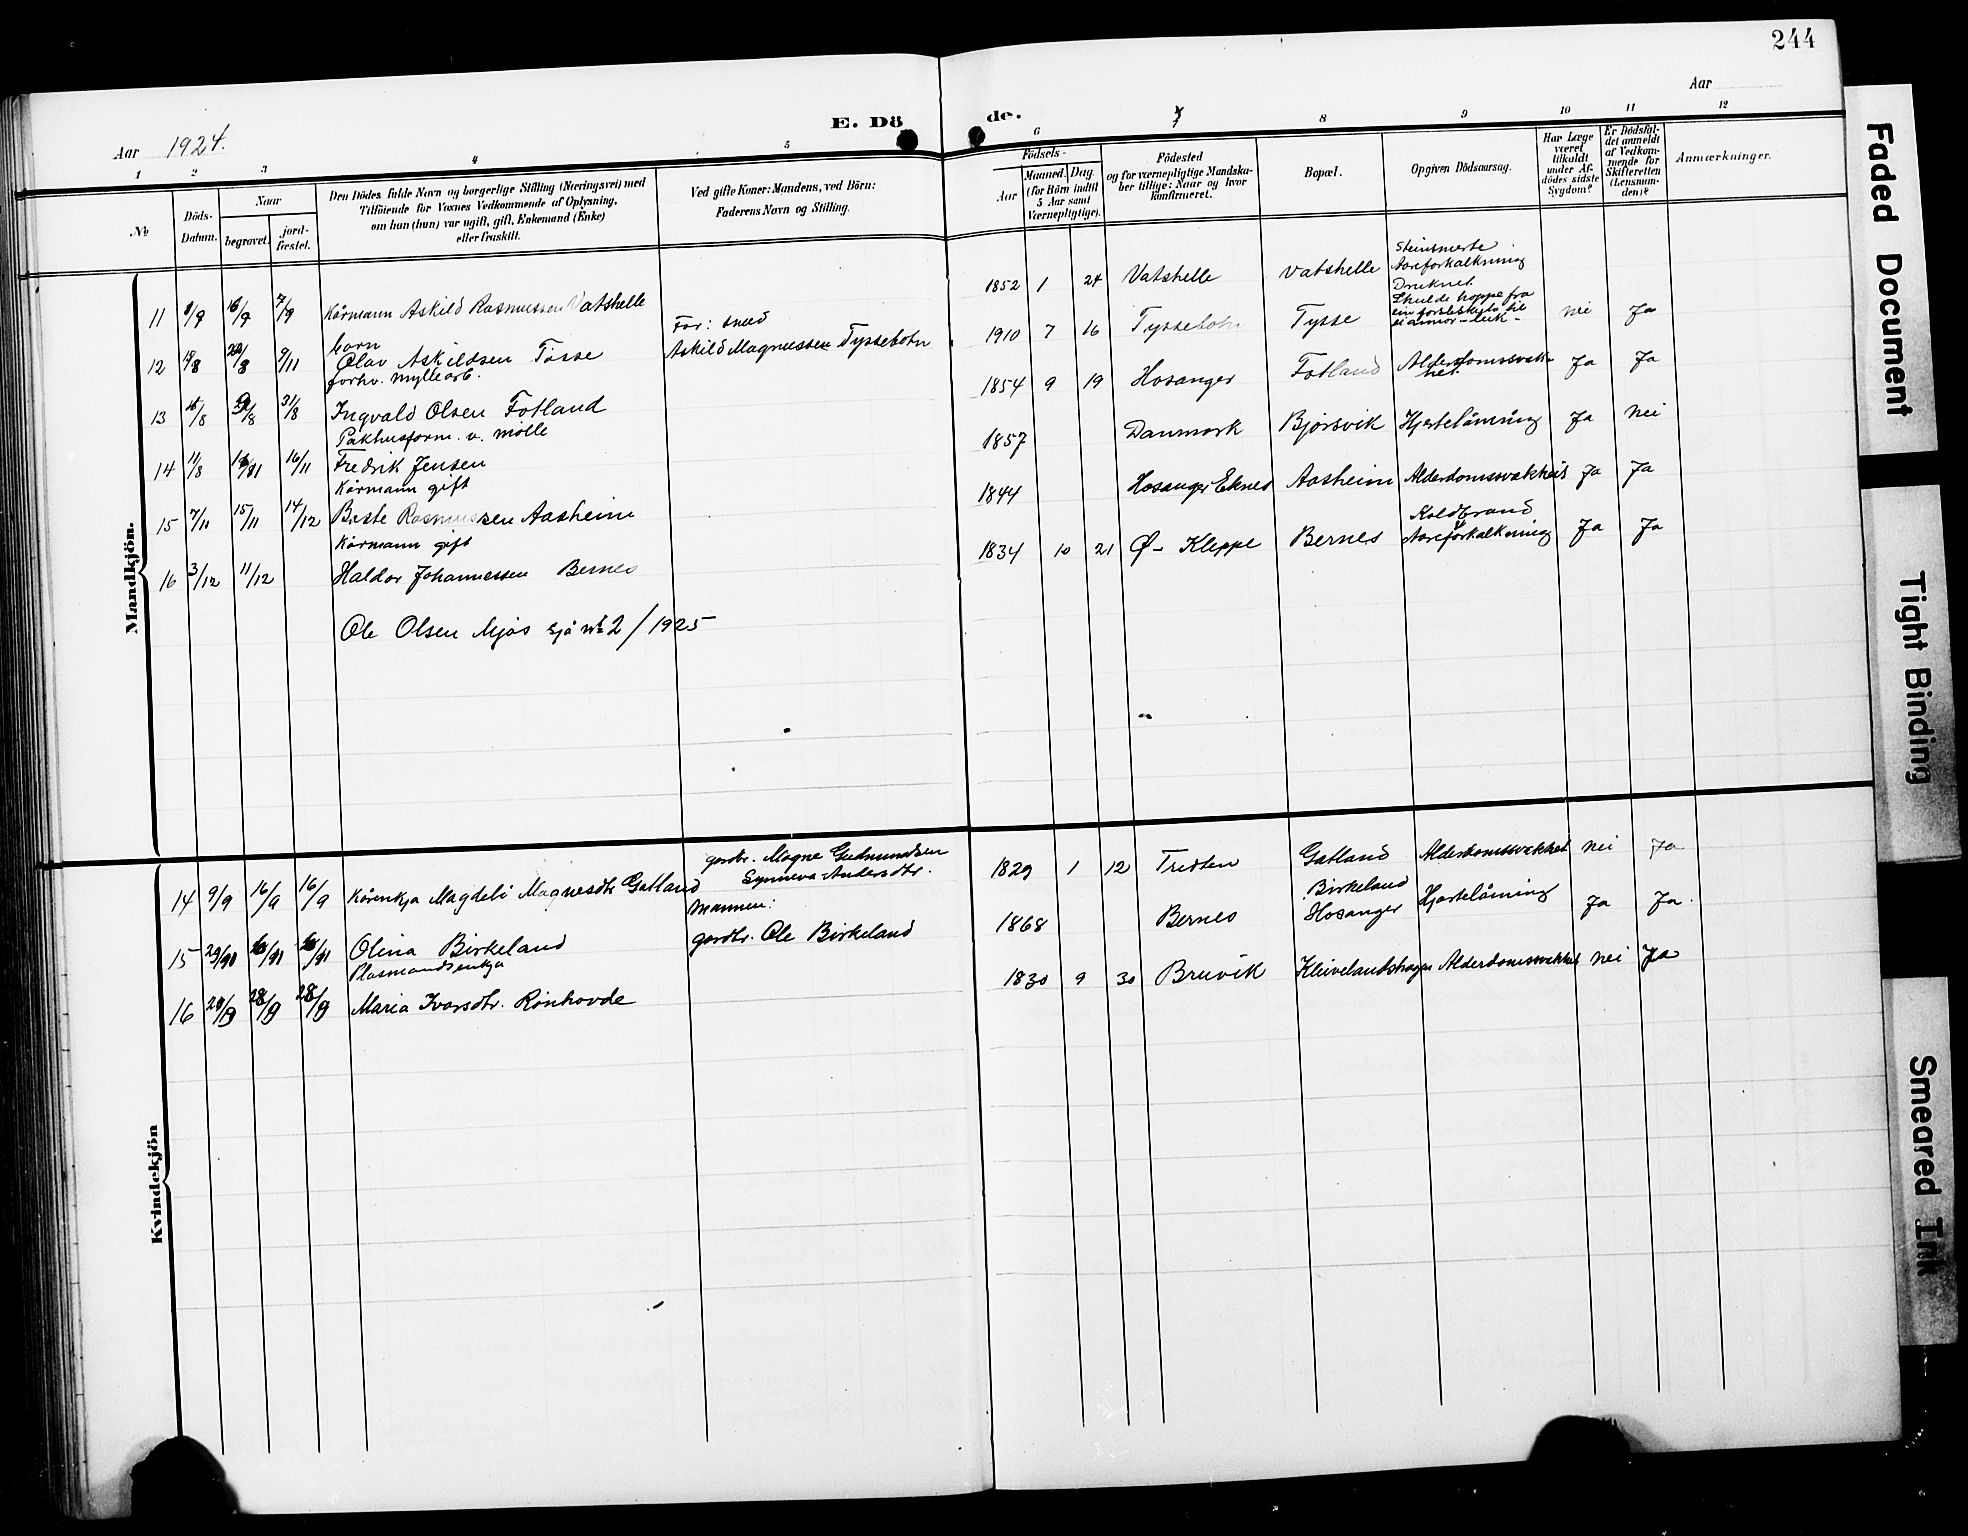 244
Aar 1924.
E. Dö de.
Aar
1 2 3 4 5 6 7 8 9 10 11 12
№
Döds-
Datum.
Naar
begravet.
jord-
fæstet.
Den Dödes fulde Navn og borgerlige Stilling (Næringsvei) med
Tilföiende for Voxnes Vedkommende af Oplysning,
om han (hun) var ugift, gift, Enkemand (Enke)
eller fraskilt.
Ved gifte Koner: Mandens, ved Börn:
Faderens Navn og Stilling.
Födsels-
Aar
Maaned. Dag.
(for Börn indtil
5 Aar samt
Værnepligtige).
Födested
og for værnepligtige Mandska-
ber tillige: Naar og hvor
konfirmeret.
Bopæl.
Opgiven Dödsaarsag.
Har Læge
været
tilkaldt
under Af-
dödes sidste
Sygdom?
Er Dödsfal-
det anmeldt
af Vedkom-
mende for
Skifteretten
(Lensman-
den)?
Anmærkninger.
Mandkjön.
11 /9 /9 7/9 Kårmann Askild Rasmussen Vatshelle 1852 1 24 Vatshelle Vatshelle Steinsmerte
Aareforkalkning
12 18/8 /8 9/11 born
Olav Askildsen Tösse
Far: smed
Askild Magnussen Tyssebotn 1910 7 16 Tyssebotn Tysse Druknet
Skulde hoppe fra
ein til
ei annor - leik - nei Ja
13 /8 /8 31/8 forhv. myllearb.
Ingvald Olsen Fotland 1854 9 19 Hosanger Fotland Alderdomssvak-
het Ja Ja
14 11/8 16/11 Pakhusform. v. mölle
Fredrik Jensen 1857 Danmark Bjørsvik Hjertelåming Ja Nei
15 7/11 15/11 14/12 Kårmann gift
Brste Rasmussen Aasheim 1844 Hosanger Eknes Aasheim Alderdomssvakheit Ja Ja
16 3/12 11/12 Kårmann gift
Haldor Johannessen Bernes 1834 10 21 Ø- Kleppe Bernes Koldbrand
Aareforkalkning Ja Ja
Ole Olsen Mjøs sjå № 2 / 1925
Kvindekjön
14 9/9 16/9 16/9 Kårenkja Magdeli Magnesdtr Gatland gardbr. Magne Gudmundsen
Synneva Andersdtr. 1829 1 12 Tveiten Gatland Alderdomssvakhet nei Ja
15 Olina Birkeland
Mannen:
gardbr. Ole Birkeland 1868 Bernes Birkeland
Hosanger Hjartelåming Ja Ja.
16 /9 28/9 28/9 Plasmandsenkja
Maria Ivarsdtr. Rönhovde 1830 9 30 Bruvik Kleivelandshagen Alderdomssvakhet nei Ja
Faded Document
Tight Binding
Smeared Ink